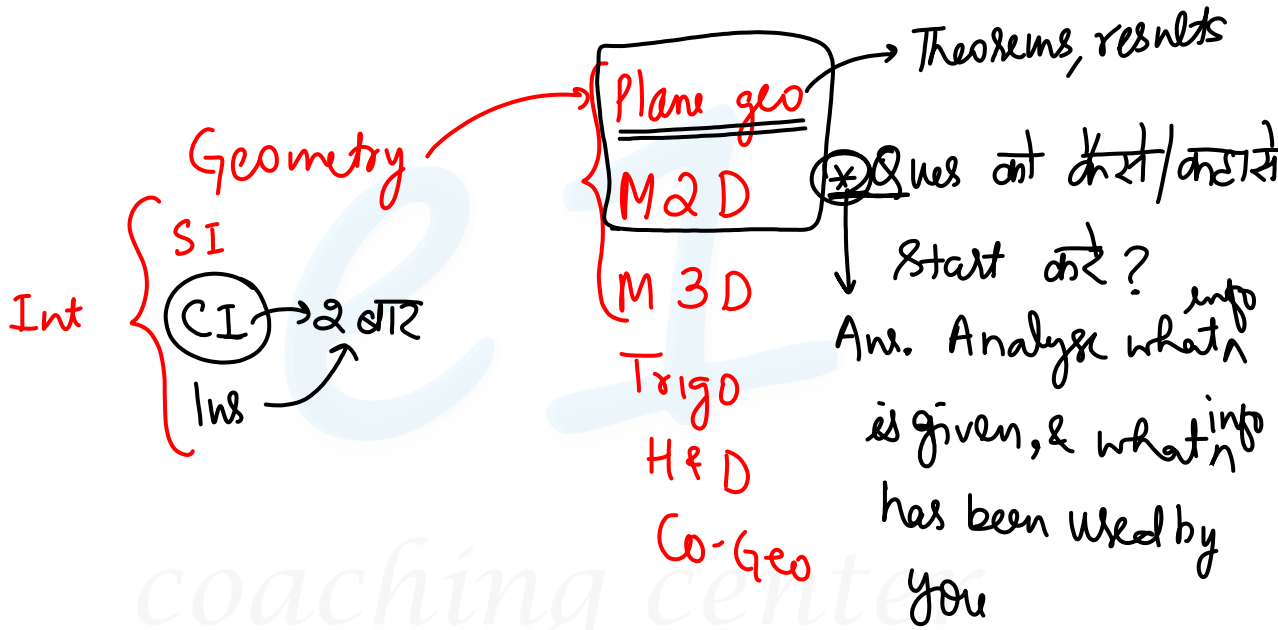 Geometry
Int
SI
CI → 2 बार
Ins
Plane geo
M2D
M3D
Trigo
H & D
Co-Geo
Theorems, results
* Ques को कैसे/कहासे
Start करे?
Ans. Analyse what info
is given, & what info
has been used by
you
e1
coaching center